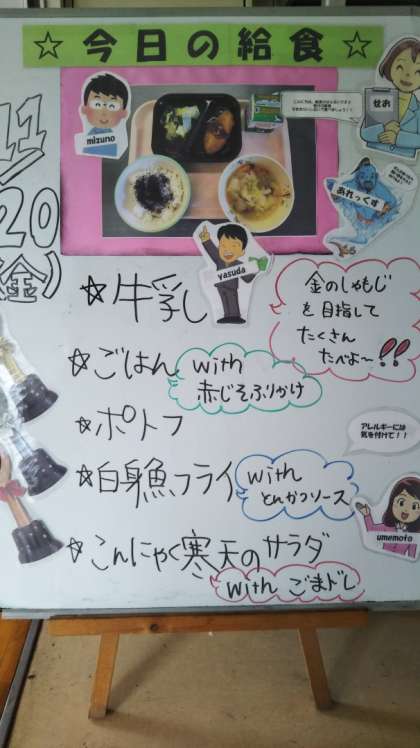 ☆今日の給食☆
せお
mizuno
あれっくす
11/20
(金)
yasuda
☆牛乳
金のしゃもじ
を目指して
たくさん
たべよ〜!!
☆ごはん with
赤じそふりかけ
☆ポトフ
アレルギーには
気を付けて!!
☆白身魚フライ with
とんかつソース
umemoto
☆こんにゃく寒天のサラダ
with ごまドレ